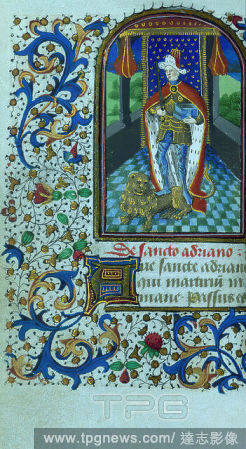 De sancto adriano·
Aue sancte adrian
qui martiriū in
mane passus
TPG
www.tpgnews.com / 達志影像